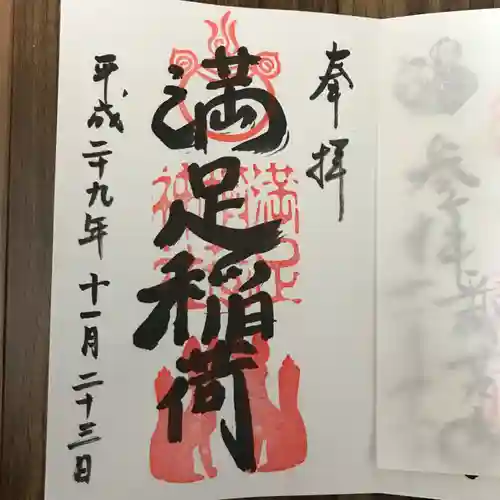 奉拝
満足稲荷
平成二十九年十一月二十三日